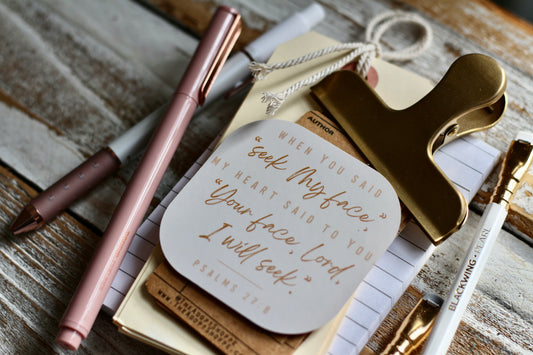 AUTHOR
WHEN YOU SAID
“Seek My face,”
MY HEART SAID TO YOU
“Your face, Lord,
I will seek.”
PSALMS 27:8
BLACKWING PEARL